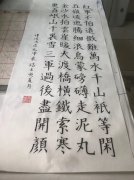 紅軍不怕遠征難萬水千山祇等閑
五嶺逶迤騰細浪烏蒙磅礴走泥丸
金沙水拍雲崖暖大渡橋橫鐵索寒
更喜岷山千里雪三軍過後盡開顏